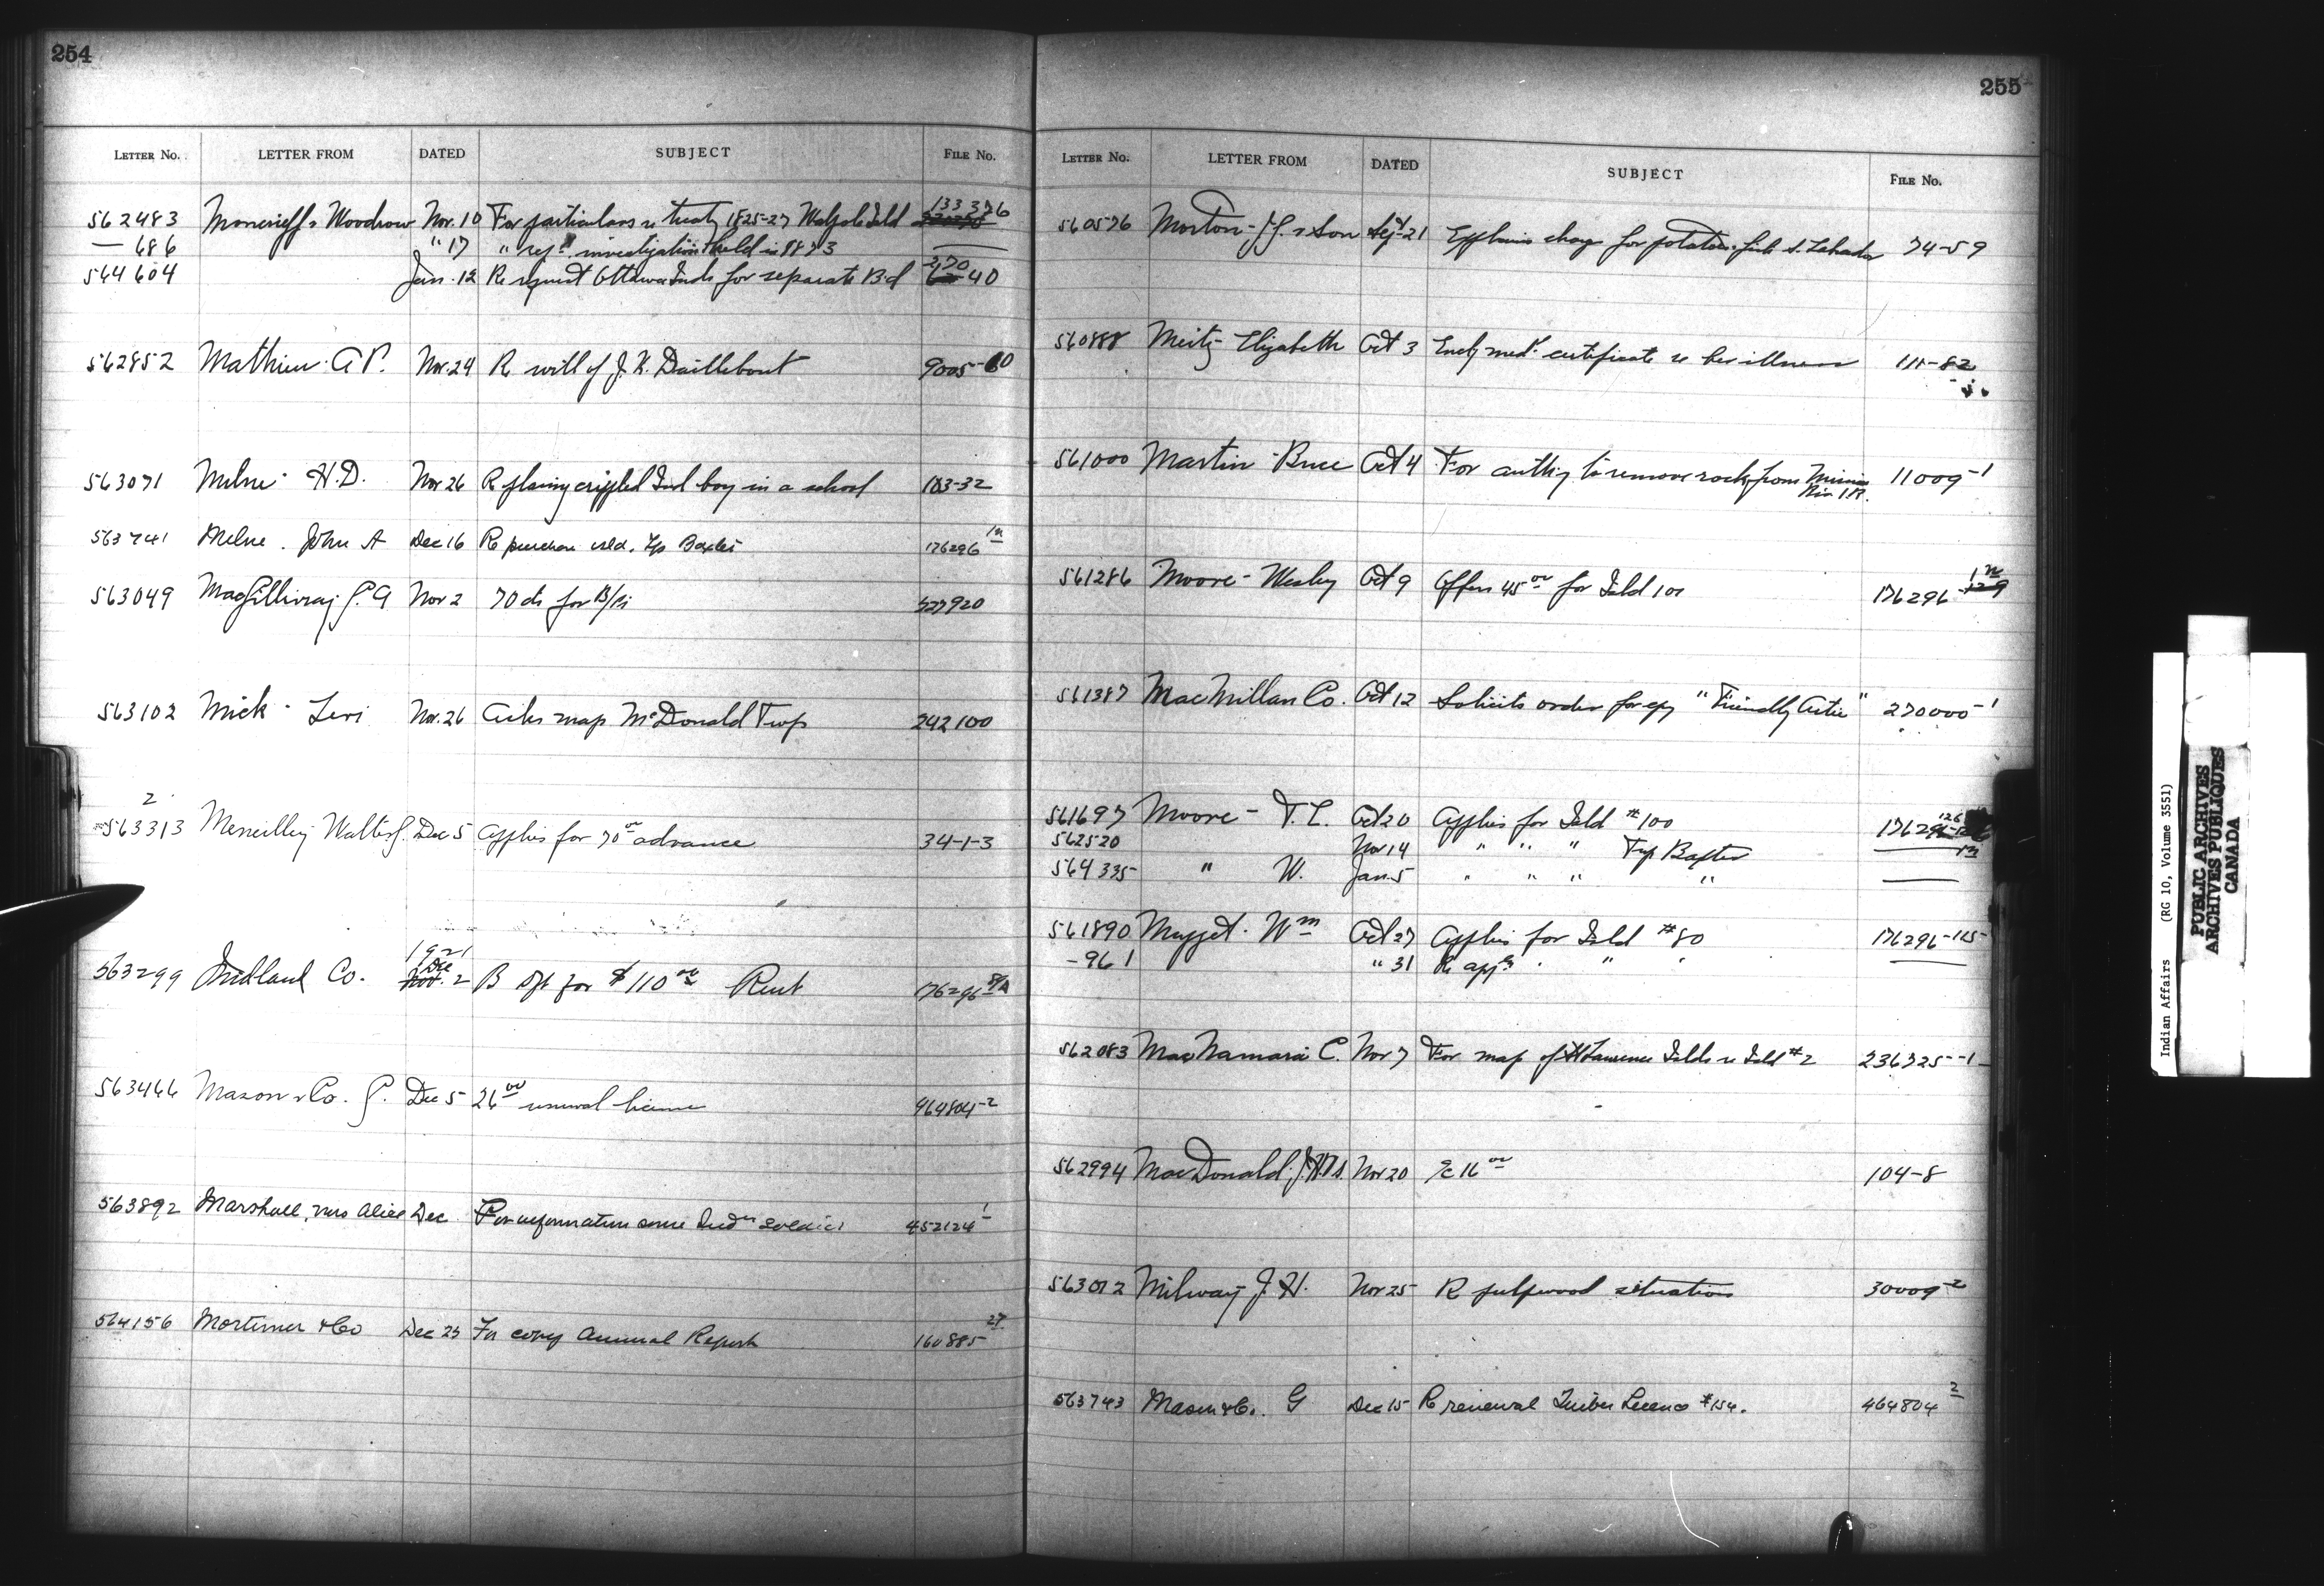 254
LETTER No. LETTER FROM DATED SUBJECT FILE No.
562483 Moncrieff & Woodrow Nov. 10 For particulars re treaty 1825-27 Walpole Isld 133376
— 686 " 17 " investigation held in 1873 ——
564604 Jan. 12 Re request Ottawa Inds for separate Bd 270 40
562852 Mathieu A P. Nov. 24 R will of J. K. Daillebout 9005-60
563071 Milne - H.D. Nov 26 R placing crippled Ind boy in a school 183-32
563741 Milne . John A Dec 16 R purchase isld. Tp Baxter 176296
563049 MacGillivray Nov 2 70 cts for B/Pi 527920
563102 Mick - Levi Nov. 26 Asks map McDonald Twp 242100
2
563313 Walter J. Dec 5 Applies for 70 00 advance 34-1-3
1921
563299 Midland Co. Dec 2 B Dft for $110 00 Rent 176296
563466 Mason & Co. G. Dec 5 26 00 renewal license 464804-2
563892 Marshall, Mrs Alice Dec For information some Indn soldiers 452124-1
564156 Mortimer & Co Dec 23 For copy Annual Report 160885 27
255
LETTER No. LETTER FROM DATED SUBJECT FILE No.
560576 Morton - & Son Sept-21 Explains charge for potatoes 74-59
560888 Meitz Elizabeth Oct 3 Encl med. certificate re her illness 111-82
561000 Martin - Bruce Oct 4 For authy to remove rock from Mission Riv I.R. 11009-1
561286 Moore - Wesley Oct 9 Offers 45 00 for Isld 101 176296
561387 MacMillan Co. Oct 12 Solicits order for cpy "Friendly Arctic" 270000-1
561697 Moore - T. L. Oct 20 Applies for Isld #100 176296
562520 Nov 14 " " " Twp Baxter ——
564335 " W. Jan. 5 " " " " ——
561890 Mugget. Wm Oct 27 Applies for Isld #80 176296-115
- 961 " 31 R appn " " ——
562083 MacNamara C. Nov 7 For map of St Lawrence Islds re Isld #2 236725-1
562994 MacDonald Nov 20 16 00 104-8
563012 Milway J. H. Nov 25 R pulpwood situation 30009-2
563743 Mason & Co. G Dec 15 R renewal Timber Licence #154. 464804 2
Indian Affairs (RG 10, Volume 3551)
PUBLIC ARCHIVES
ARCHIVES PUBLIQUES
CANADA